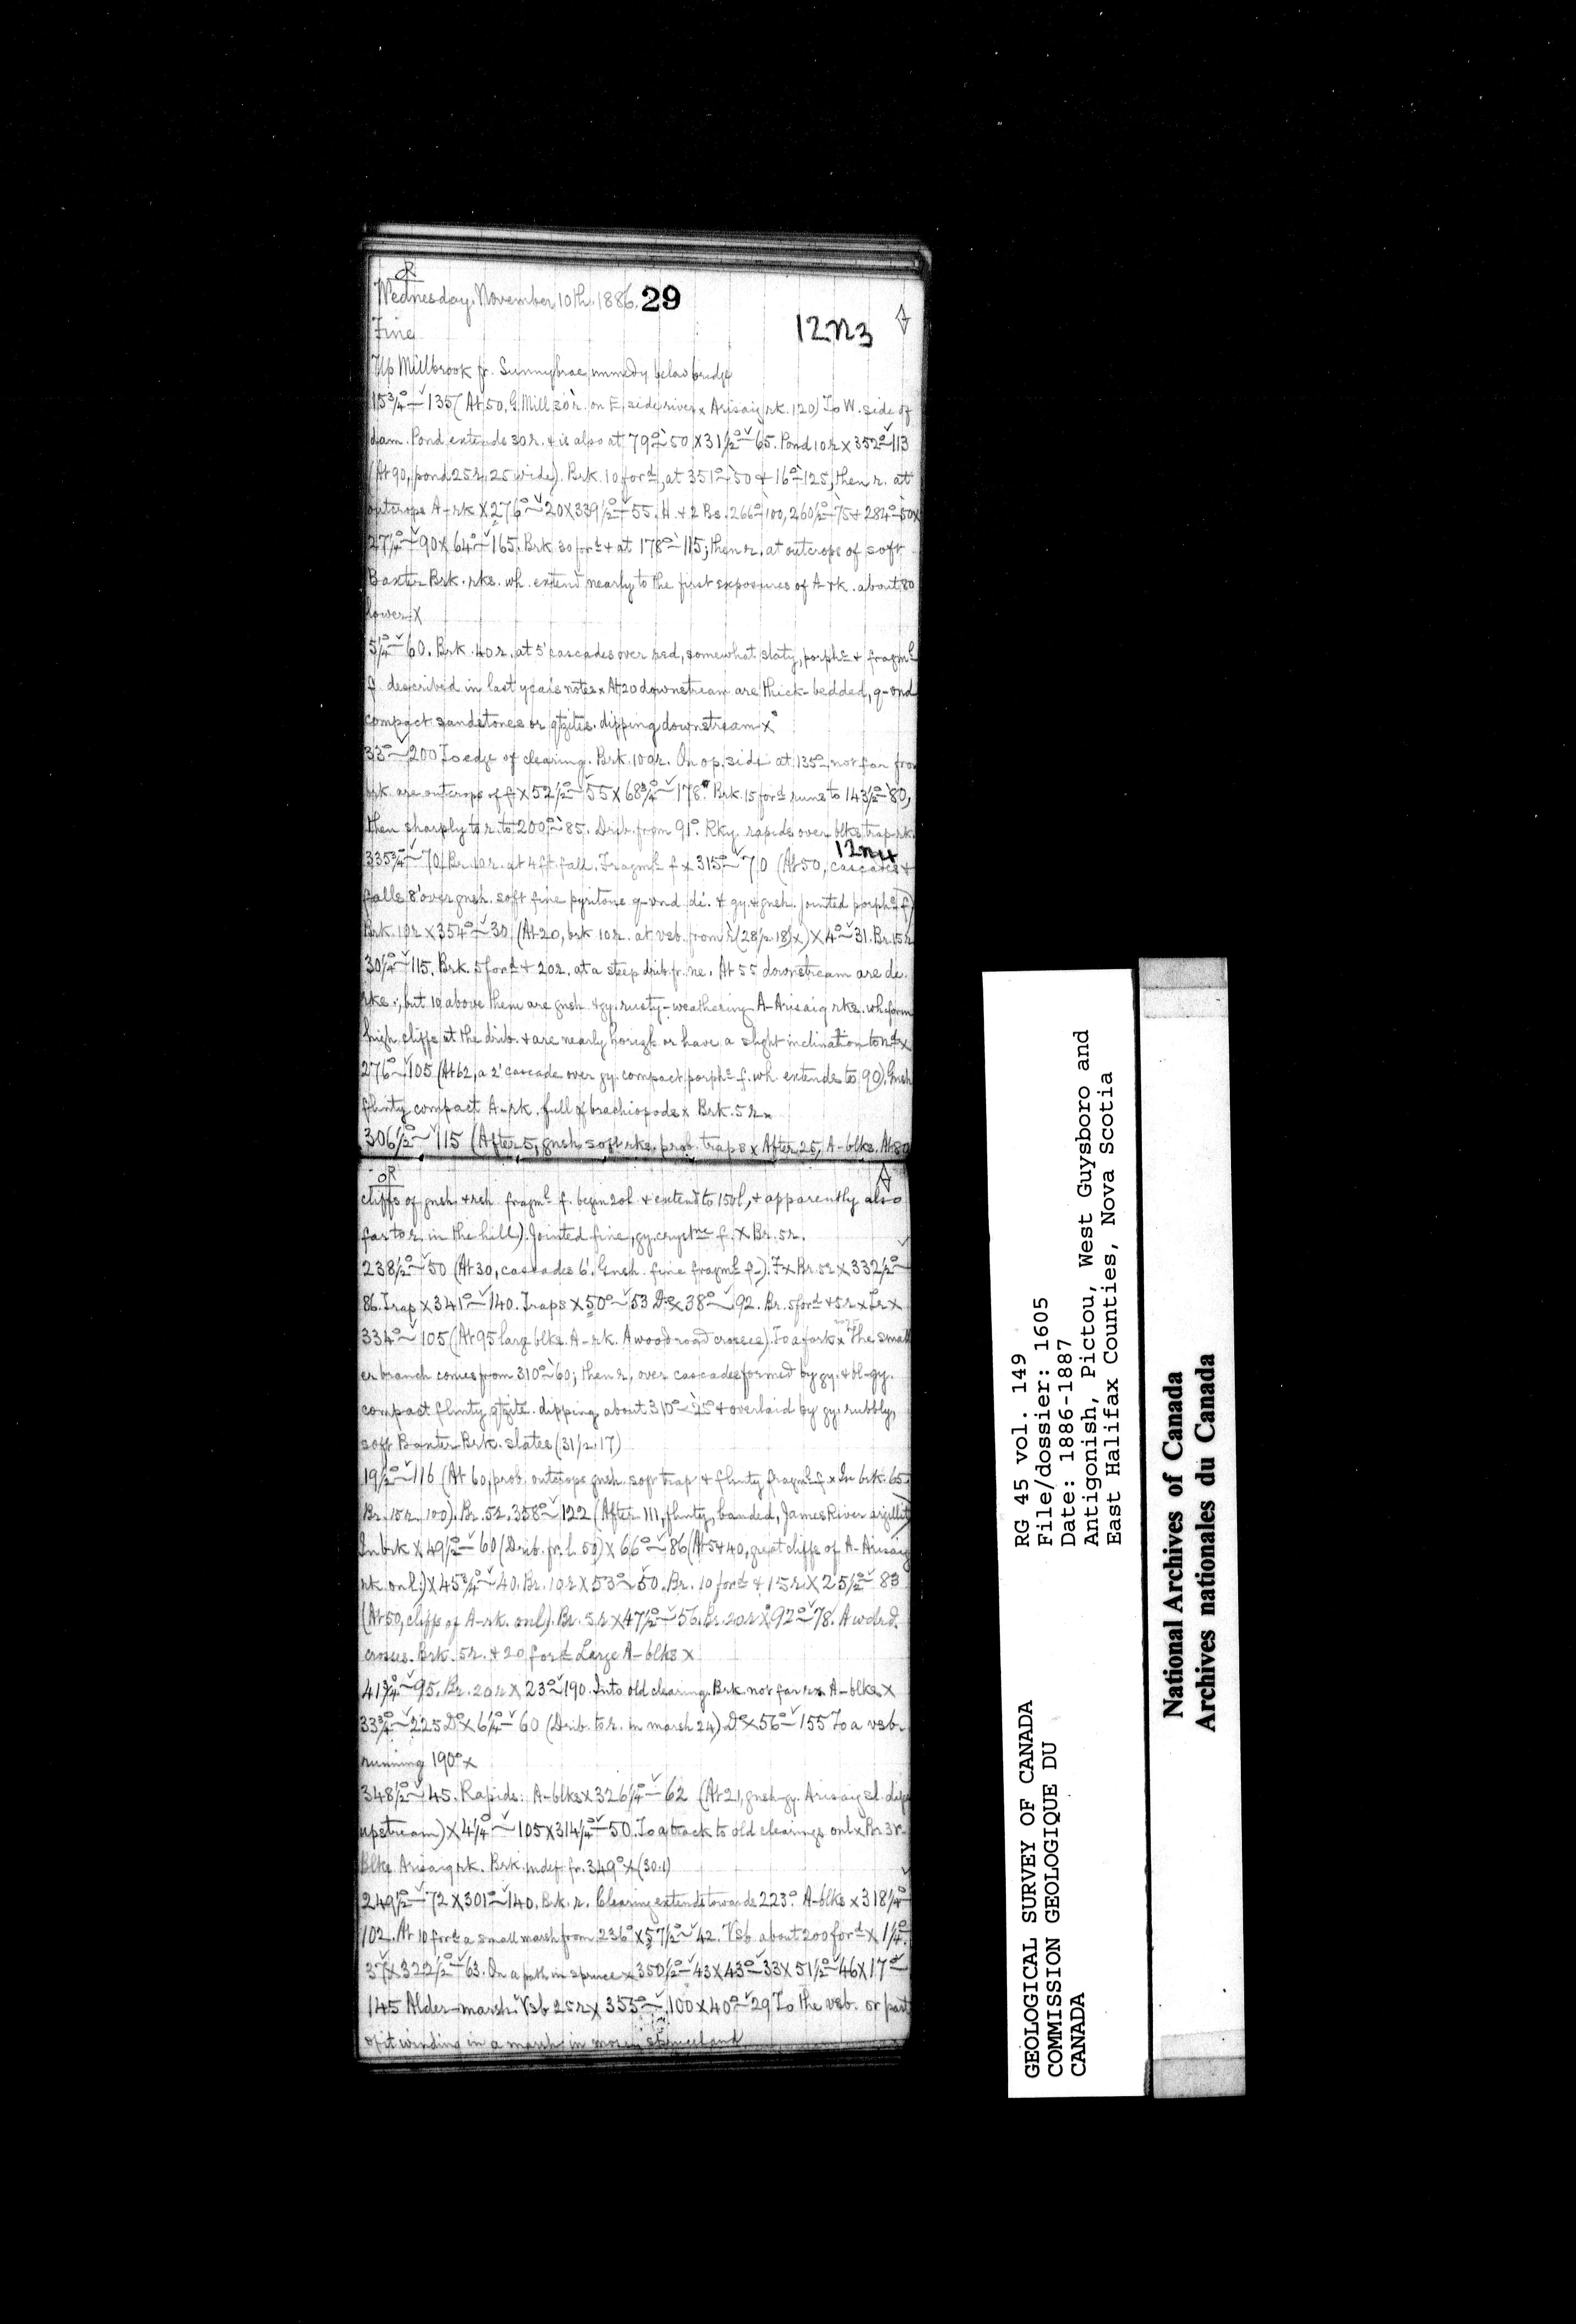 OR
Wednesday. November 10th. 1886. 29
Fine 12n3
Up Millbrook fr. Sunnybrae, immedy. below bridge
153¾°–135 (At 50, G. Mill 30 r. on E. side river x Arisaig rk. 120) To W. side of
dam. Pond extends 30 r. & is also at 79°–50 X 31½°–65. Pond 10 r x 352°–113
(At 90, pond 25 r, 25 wide). Brk. 10 ford, at 351°–50 & 16°–125, then r. at
outcrops A-rk X 276°~20 X 339½°–55. H. & 2 Bs. 266°–100, 260½°–75 & 284°–50 x
27¼°–90 x 64°–165. Brk 30 ford & at 178°–115; then r. at outcrops of soft
Baxter Brk. rks. wh. extend nearly to the first exposures of A-rk. about 80
lower X
5¼°–60. Brk. 40 r. at 5' cascades over red, somewhat slaty, porphc & fragml
f. described in last year's notes x At 20 downstream are thick-bedded, q-vnd
compact sandstones or qtzites. dipping downstream X
33°~200 To edge of clearing. Brk. 100 r. On op. side at 135°, not far from
brk. are outcrops of f x 52½°~55 x 68¾°~178. Brk. 15 ford runs to 143½°–80,
then sharply to r. to 200°~85. Drib. from 91°. Rky. rapids over blks trap-rk.
12n4
335¾°~70. Br. 10 r. at 4 ft. fall. Fragml f x 315°~70 (At 50, cascades &
falls 8' over gnsh. soft fine pyritous q-vnd di. & gy. & gnsh. jointed porphc f)
Brk. 10 r x 354°~30 (At 20, brk 10 r. at vsb. from r (28½.18) x) X 4°~31. Br. 15 r
30¼°~115. Brk. 5 ford & 20 r. at a steep drib. fr. ne. At 55 downstream are di.
rks.; but 10 above them are gnsh. & gy. rusty-weathering A-Arisaig rks. wh. form
high cliffs at the drib. & are nearly horizl. or have a slight inclination to nd x
276°~105 (At 62, a 2' cascade over gy. compact porphc f. wh. extends to 90). Gnsh
flinty compact A-rk. full of brachiopods x Brk. 5 r x
306½°~115 (After 5, gnsh soft rks. prob. traps x After 25, A-blks. At 80
OR
cliffs of gnsh. & rdh fragml f. begin 20 l & extend to 150 l, & apparently also
far to r. in the hill). Jointed fine, gy. crystne f. X Br. 5 r.
238½°~50 (At 30, cascades 6'. Gnsh. fine fragml f-). F x Br. 5 r x 332½°~
86. Trap x 341°–140. Traps x 50°~53 Do x 38°~92. Br. 5 ford & 5 r x
334°~105 (At 95 large blks. A-rk. A wood road crosses). To a fork x The small
er branch comes from 310°~60; then r, over cascades formed by gy. & bl-gy.
compact flinty qtzite. dipping about 310°–25° & overlaid by gy. rubbly,
soft Baxter Brk. slates (31½.17)
19½°~116 (At 60, prob. outcrops gnsh. soft trap & flinty fragml f x In brk. 65.
Br. 15 r. 100). Br. 5 r. 358°~122 (After 111, flinty, banded, James River argillite)
In brk x 49½°–60 (Drib. fr. l. 50) x 66°~86 (At 5 & 40, great cliffs of A-Arisaig
rk on l.) X 45¾°~40. Br. 10 r x 53°~50. Br. 10 ford & 15 r X 25½°~83
(At 50, cliffs of A-rk. on l). Br. 5 r x 47½°~56. Br. 20 r x 92°~78. A wdrd.
crosses. Brk. 5 r. & 20 ford Large A-blks x
41¾°~95. Br. 20 r x 23°~190. Into old clearing. Brk not far r x A-blks x
33¾°~225 Do x 6¼°–60 (Drib. to r. in marsh 24) Do x 56°–155 To a vsb.
running 190° x
348½°~45. Rapids: A-blks x 326¼°–62 (At 21, gnsh-gy. Arisaig sl. dips
upstream) x 4¼°~105 x 314¼°–50. To a track to old clearings on l x Br. 3 r
Blks. Arisaig rk. Brk. indef. fr. 349° x (30.1)
249½°–72 x 301°~140. Brk. r. Clearing extends towards 223°. A-blks x 318¼°–
102. At 10 ford a small marsh from 236° x 57½°~42. Vsb. about 200 ford x 1¼°
37 x 322½°–63. On a path in spruce x 350½°–43 x 43°–33 x 51½°–46 x 17°–
145 Alder-marsh. Vsb 25 r x 355°~100 x 40°–29 To the vsb. or part
of it winding in a marsh in mossy spruceland
RG 45 vol. 149
File/dossier: 1605
Date: 1886-1887
Antigonish, Pictou, West Guysboro and
East Halifax Counties, Nova Scotia
GEOLOGICAL SURVEY OF CANADA
COMMISSION GEOLOGIQUE DU
CANADA
National Archives of Canada
Archives nationales du Canada